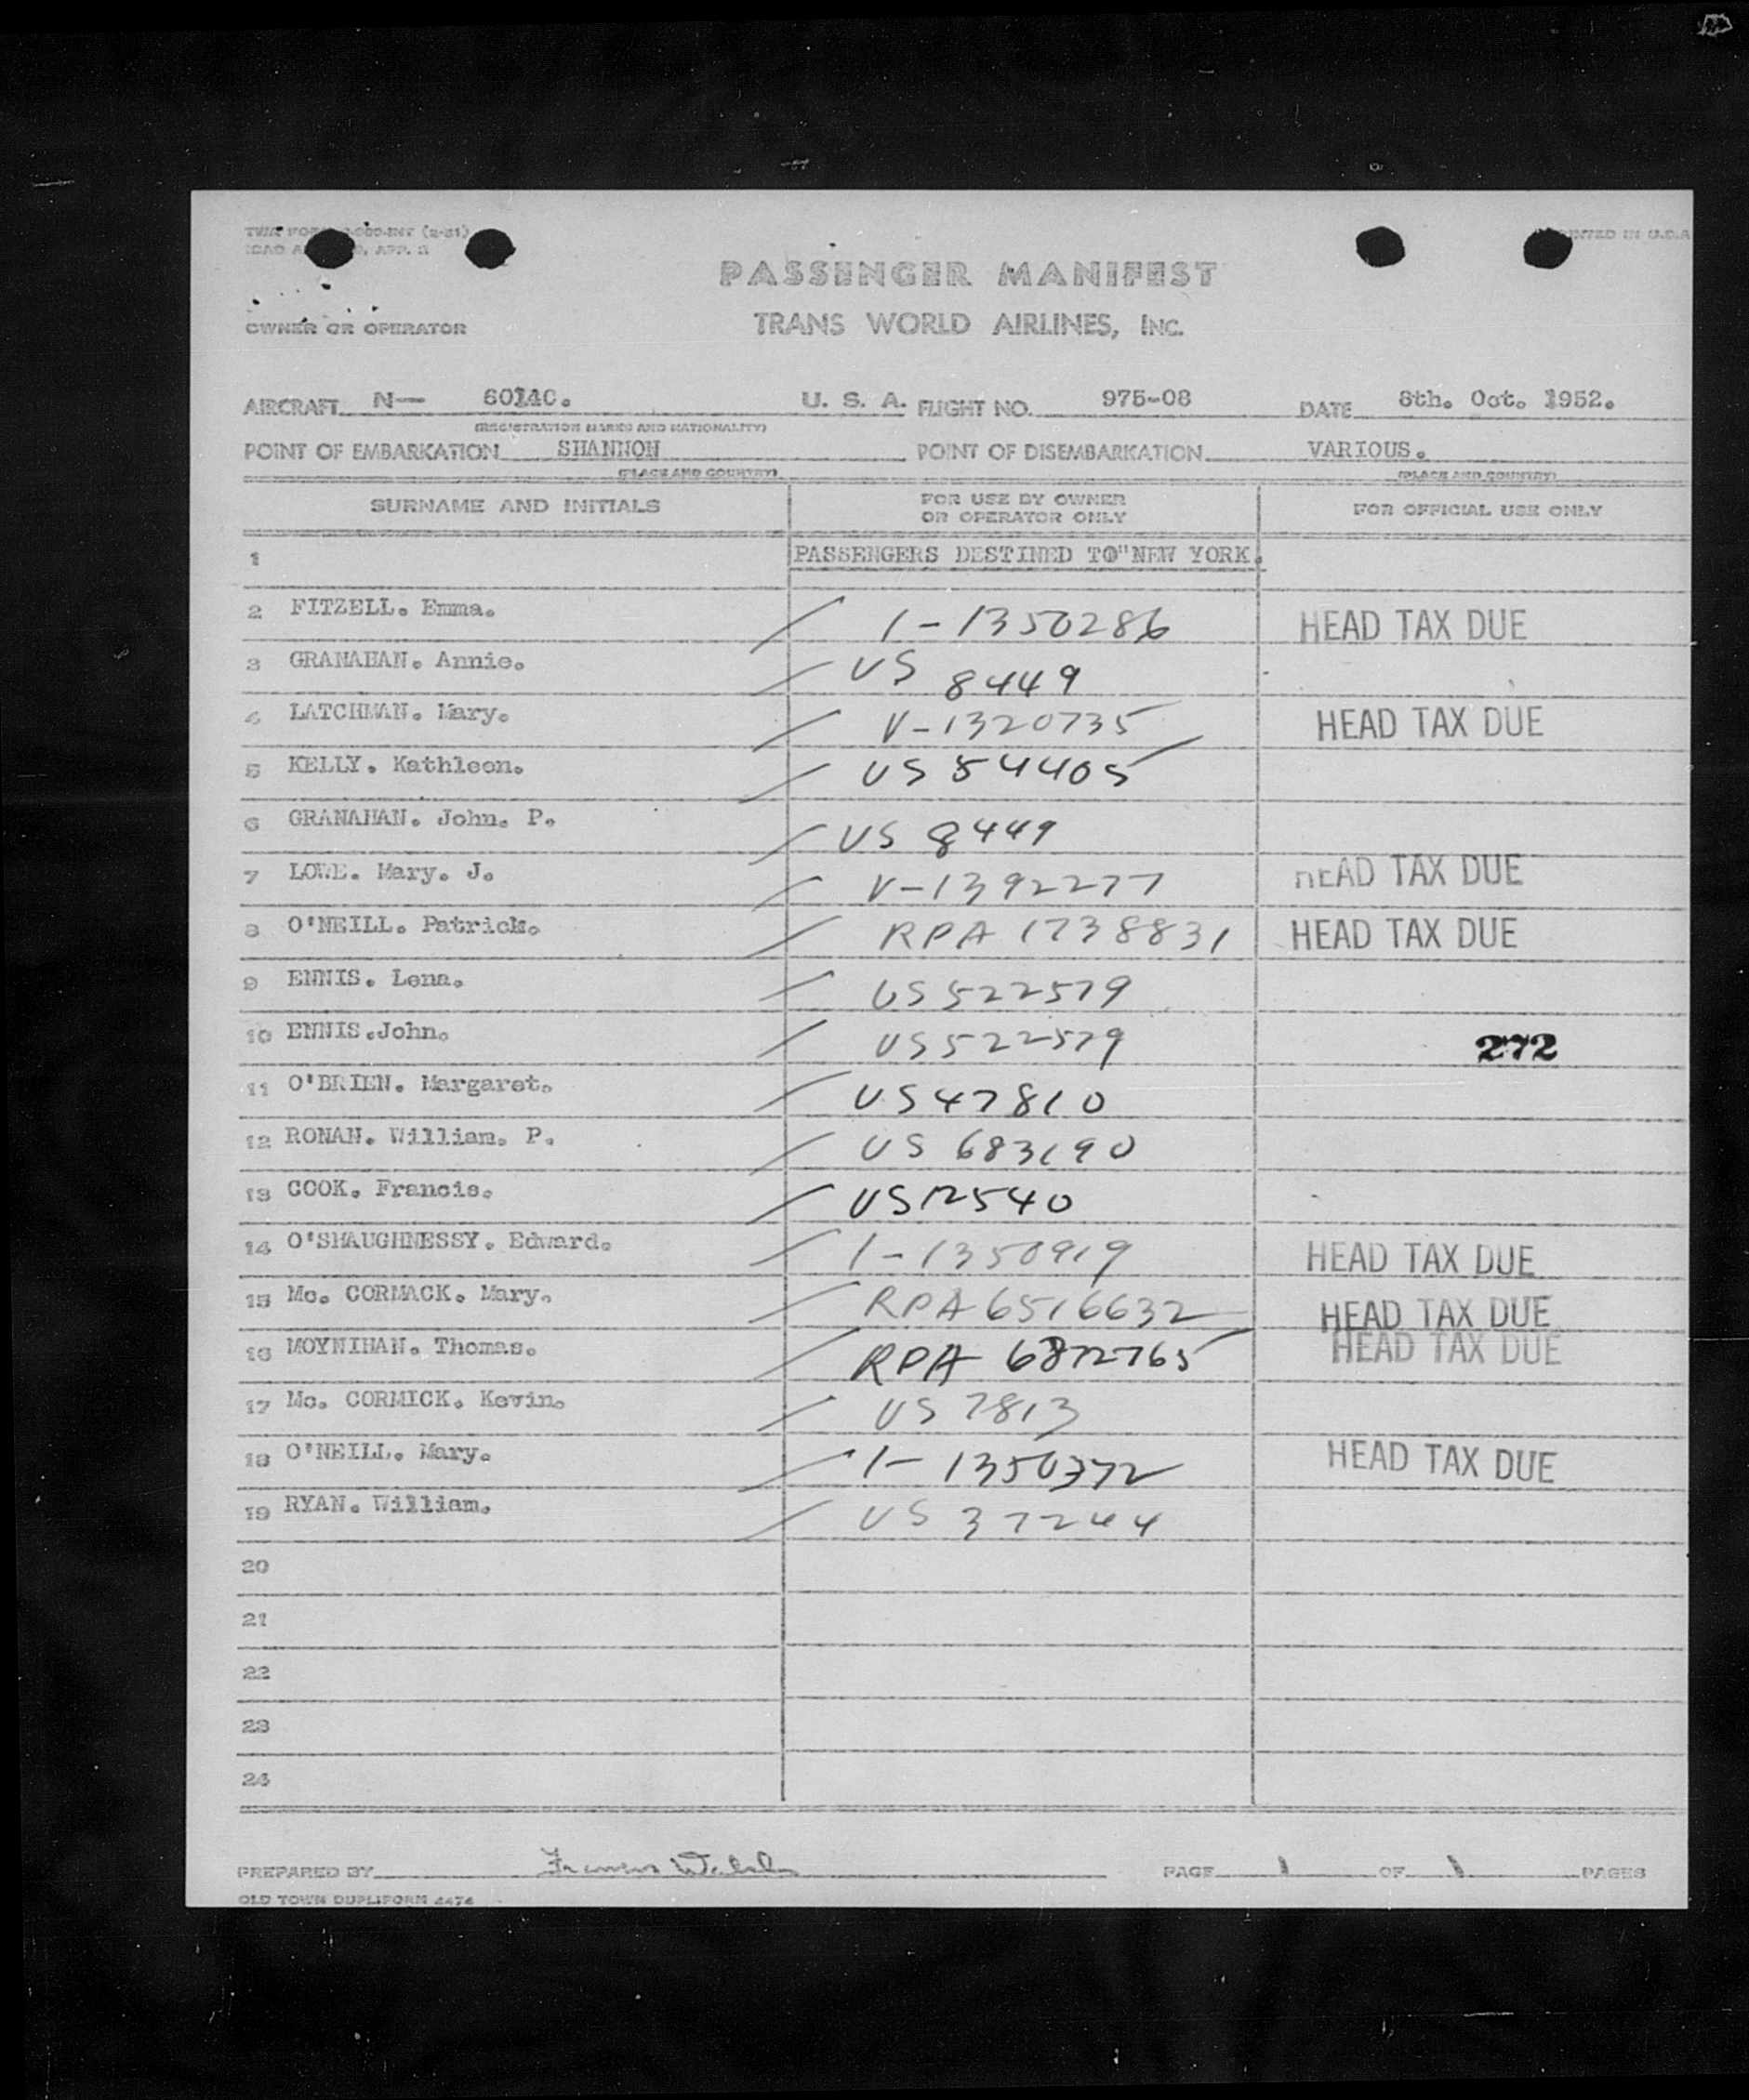 PASSENGER MANIFEST
TRANS WORLD AIRLINES, INC.
OWNER OR OPERATOR
PRINTED IN U.S.A
AIRCRAFT N— 6014C. U. S. A. FLIGHT NO. 975-08 DATE 8th. Oct. 1952.
(REGISTRATION MARKS AND NATIONALITY)
POINT OF EMBARKATION SHANNON POINT OF DISEMBARKATION VARIOUS.
(PLACE AND COUNTRY) (PLACE AND COUNTRY)
SURNAME AND INITIALS FOR USE BY OWNER OR OPERATOR ONLY FOR OFFICIAL USE ONLY
1 PASSENGERS DESTINED TO "NEW YORK.
2 FITZELL. Emma. I-1350286 HEAD TAX DUE
3 GRANAHAN. Annie. US 8449
4 LATCHMAN. Mary. V-1320735 HEAD TAX DUE
5 KELLY. Kathleen. US 54405
6 GRANAHAN. John. P. US 8449
7 LOWE. Mary. J. V-1392277 HEAD TAX DUE
8 O'NEILL. Patrick. RPA 1738831 HEAD TAX DUE
9 ENNIS. Lena. US 522579
10 ENNIS.John. US 522579 272
11 O'BRIEN. Margaret. US 47810
12 RONAN. William. P. US 683190
13 COOK. Francis. US 12540
14 O'SHAUGHNESSY. Edward. I-1350919 HEAD TAX DUE
15 Mc. CORMACK. Mary. RPA 6516632 HEAD TAX DUE
16 MOYNIHAN. Thomas. RPA 6872765 HEAD TAX DUE
17 Mc. CORMICK. Kevin. US 7813
18 O'NEILL. Mary. I-1350372 HEAD TAX DUE
19 RYAN. William. US 37244
20
21
22
23
24
PREPARED BY Francis Walsh PAGE 1 OF 1 PAGES
OLD TOWN DUPLIFORM 4474